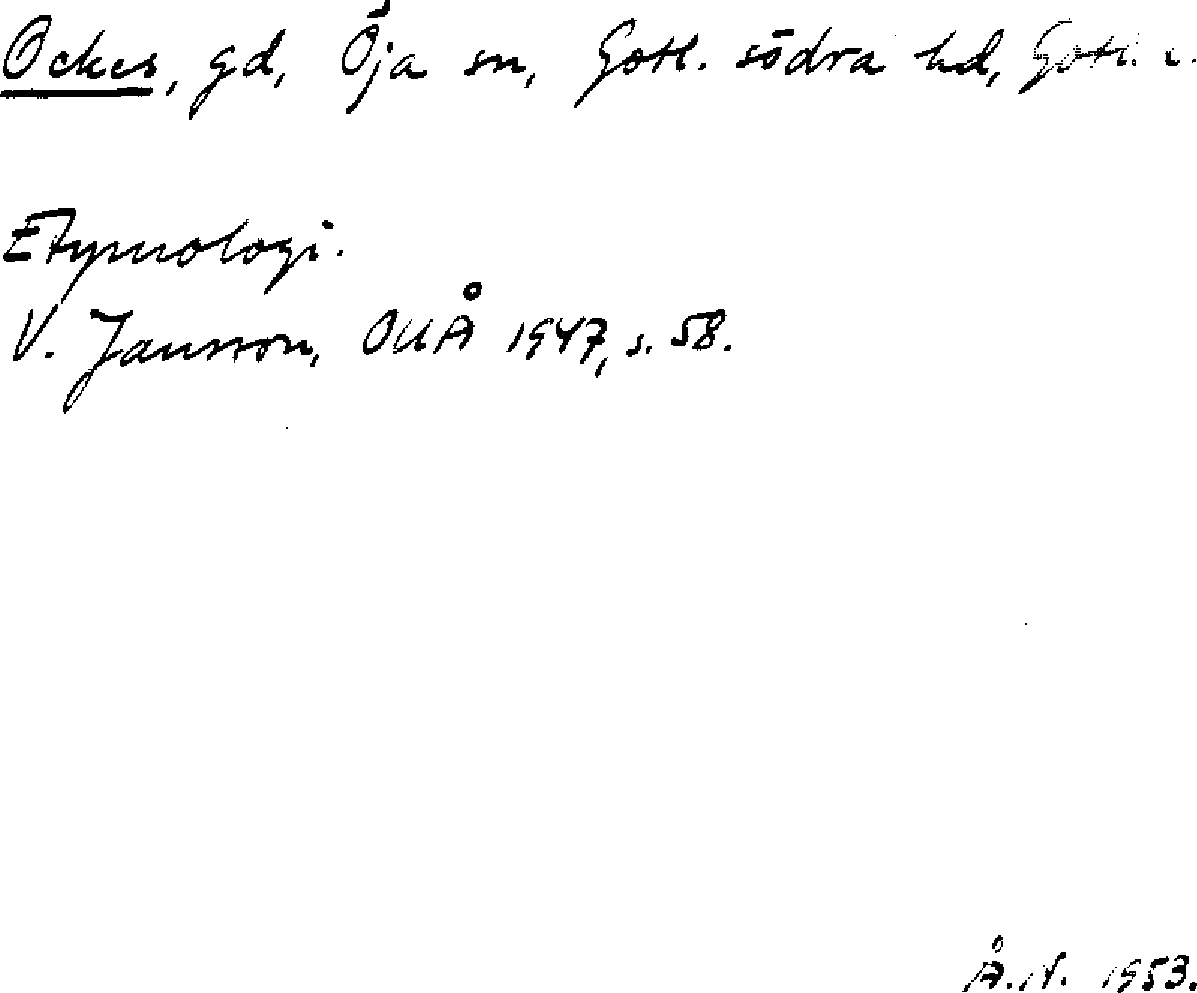 Ockes, gd, Öja sn, Gotl. södra hd, Gotl. l.
Etymologi.
V. Jansson, OUÅ 1947, s. 58.
Å.N. 1953.